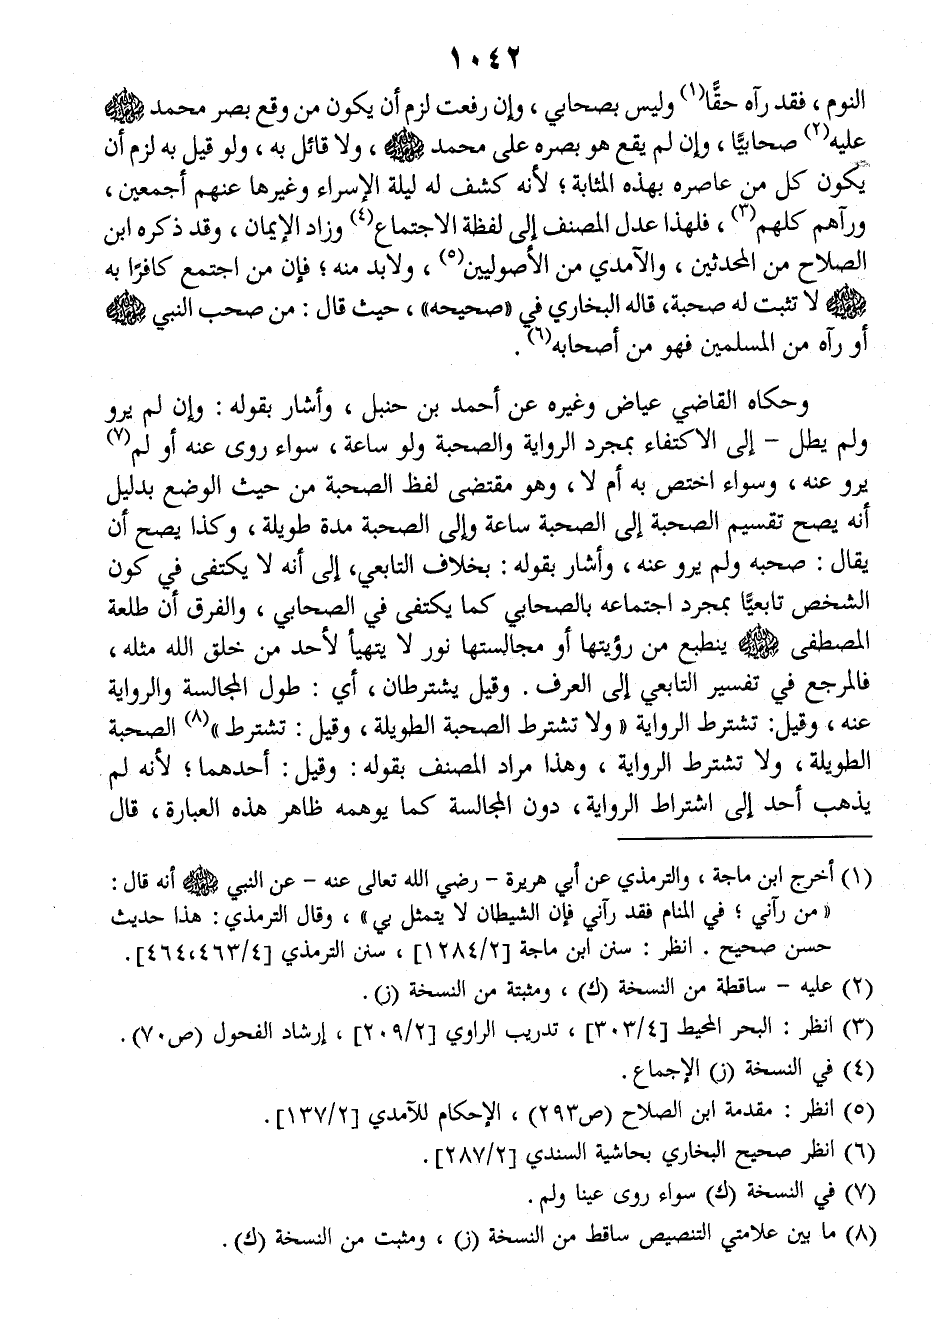 ١٠٤٢
النوم ، فقد رآه حقًّا(١) وليس بصحابي ، وإن رفعت لزم أن يكون من وقع بصر محمد ﷺ
عليه(٢) صحابيًّا ، وإن لم يقع هو بصره على محمد ﷺ ، ولا قائل به ، ولو قيل به لزم أن
يكون كل من عاصره بهذه المثابة ؛ لأنه كشف له ليلة الإسراء وغيرها عنهم أجمعين ،
ورآهم كلهم(٣) ، فلهذا عدل المصنف إلى لفظة الاجتماع(٤) وزاد الإيمان ، وقد ذكره ابن
الصلاح من المحدثين ، والآمدي من الأصوليين(٥) ، ولابد منه ؛ فإن من اجتمع كافرًا به
ﷺ لا تثبت له صحبة، قاله البخاري في «صحيحه» ، حيث قال : من صحب النبي ﷺ
أو رآه من المسلمين فهو من أصحابه(٦) .
وحكاه القاضي عياض وغيره عن أحمد بن حنبل ، وأشار بقوله : وإن لم يرو
ولم يطل – إلى الاكتفاء بمجرد الرواية والصحبة ولو ساعة ، سواء روى عنه أو لم(٧)
يرو عنه ، وسواء اختص به أم لا ، وهو مقتضى لفظ الصحبة من حيث الوضع بدليل
أنه يصح تقسيم الصحبة إلى الصحبة ساعة وإلى الصحبة مدة طويلة ، وكذا يصح أن
يقال : صحبه ولم يرو عنه ، وأشار بقوله : بخلاف التابعي، إلى أنه لا يكتفى في كون
الشخص تابعيًّا بمجرد اجتماعه بالصحابي كما يكتفى في الصحابي ، والفرق أن طلعة
المصطفى ﷺ ينطبع من رؤيتها أو مجالستها نور لا يتهيأ لأحد من خلق الله مثله ،
فالمرجع في تفسير التابعي إلى العرف . وقيل يشترطان ، أي : طول المجالسة والرواية
عنه ، وقيل: تشترط الرواية « ولا تشترط الصحبة الطويلة ، وقيل : تشترط »(٨) الصحبة
الطويلة ، ولا تشترط الرواية ، وهذا مراد المصنف بقوله : وقيل : أحدهما ؛ لأنه لم
يذهب أحد إلى اشتراط الرواية ، دون المجالسة كما يوهمه ظاهر هذه العبارة ، قال
(١) أخرج ابن ماجة ، والترمذي عن أبي هريرة – رضي الله تعالى عنه – عن النبي ﷺ أنه قال :
« من رآني ؛ في المنام فقد رآني فإن الشيطان لا يتمثل بي» ، وقال الترمذي : هذا حديث
حسن صحيح . انظر : سنن ابن ماجة [١٢٨٤/٢] ، سنن الترمذي [٤٦٤،٤٦٣/٤].
(٢) عليه – ساقطة من النسخة (ك) ، ومثبتة من النسخة (ز).
(٣) انظر : البحر المحيط [٣٠٣/٤] ، تدريب الراوي [٢٠٩/٢] ، إرشاد الفحول (ص٧٠) .
(٤) في النسخة (ز) الإجماع .
(٥) انظر : مقدمة ابن الصلاح (ص٢٩٣) ، الإحكام للآمدي [١٣٧/٢] .
(٦) انظر صحيح البخاري بحاشية السندي [٢٨٧/٢] .
(٧) في النسخة (ك) سواء روى عينا ولم .
(٨) ما بين علامتي التنصيص ساقط من النسخة (ز) ، ومثبت من النسخة (ك) .